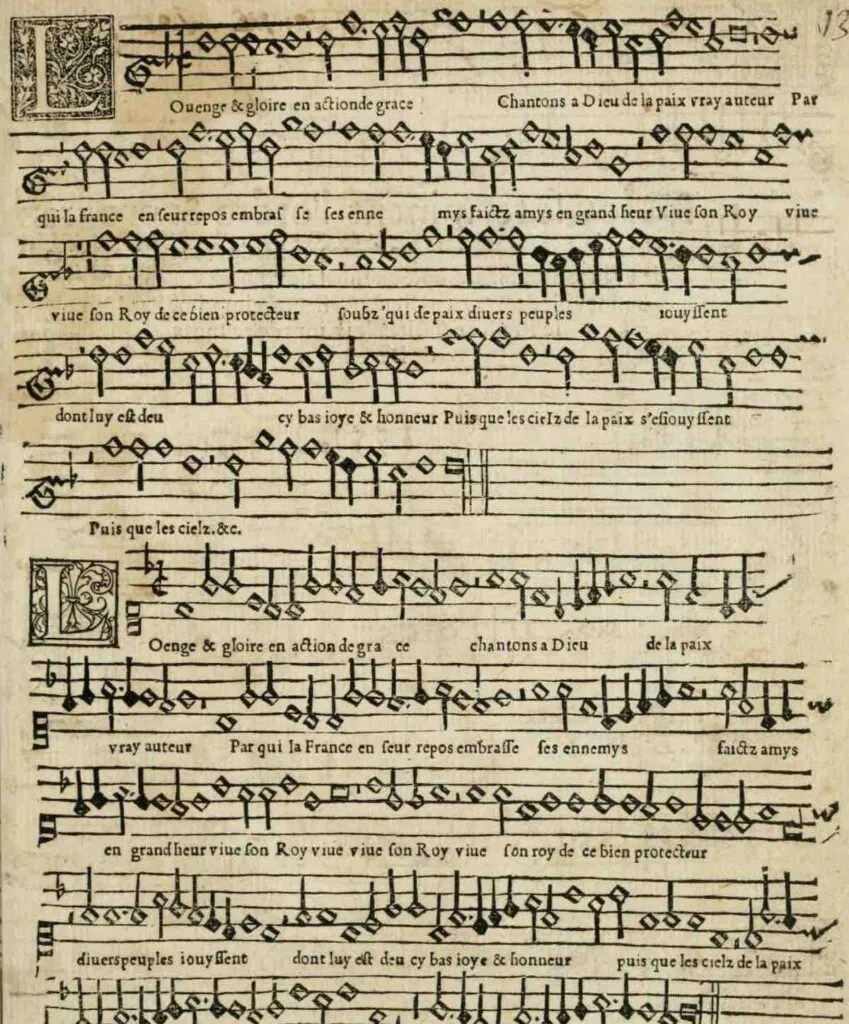 13
LOuenge & gloire en actionde grace Chantons a Dieu de la paix vray auteur Par
qui la france en seur repos embras se ses enne mys faictz amys en grand heur Viue son Roy viue
viue son Roy de ce bien protecteur soubz qui de paix diuers peuples iouyssent
dont luy est deu cy bas ioye & honneur Puis que les cielz de la paix s'esiouyssent
Puis que les cielz.&c.
LOenge & gloire en action de gra ce chantons a Dieu de la paix
vray auteur Par qui la France en seur repos embrasse ses ennemys faictz amys
en grand heur viue son Roy viue viue son Roy viue son roy de ce bien protecteur
diuers peuples iouyssent dont luy est deu cy bas ioye & honneur puis que les cielz de la paix